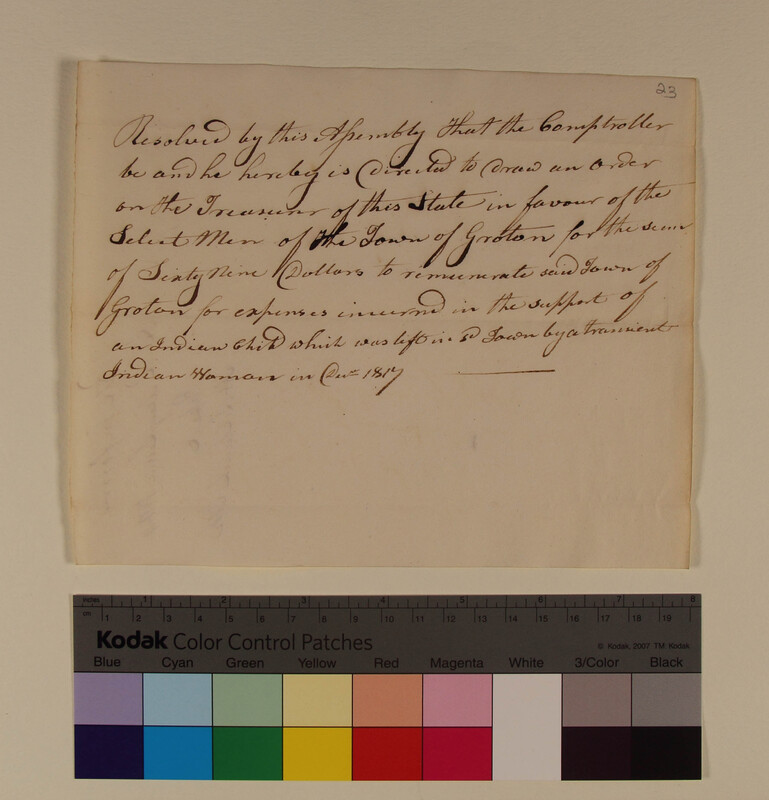 23
Resolved by this Assembly That the Comptroller
be and he hereby is Directed to Draw an Order
on the Treasurer of this State in favour of the
Select Men of the Town of Groton for the sum
of Sixty Nine Dollars to remunerate said Town of
Groton for expenses incurred in the support of
an Indian Child which was left in sd Town by a transient
Indian Woman in Decr 1817
inches 1 2 3 4 5 6 7 8
cm 1 2 3 4 5 6 7 8 9 10 11 12 13 14 15 16 17 18 19
Kodak Color Control Patches
© Kodak, 2007 TM: Kodak
Blue Cyan Green Yellow Red Magenta White 3/Color Black